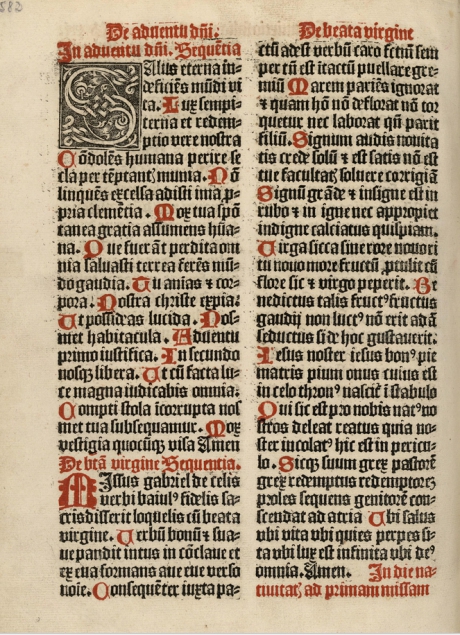 582
De aduentu dñi.
In aduentu dñi. Sequētia
Salus eterna in-
deficiēs mūdi vi
ta. Lux sempi-
terna et redem-
ptio vere nostra
Cōdolēs humana perire se
cla per tēptantꝭ numina. Nō
linquēs excelsa adisti ima ꝓ-
pria clemētia. Mox tua spō
tanea gratia assumens hūa-
na. Que fuerāt perdita om
nia saluasti terrea ferēs mū-
do gaudia. Tu anīas ⁊ cor-
pora. Nostra christe expia:
Ut possideas lucida. Nos-
met habitacula. Aduentu
primo iustifica. In secundo
nosqꝫ libera. Ut cū facta lu-
ce magna iudicabis omnia.
Compti stola īcorrupta nos
met tua subsequamur. Mox
vestigia quocūqꝫ visa Amen
De btā virgine Sequentia.
Missus gabriel de celis
verbi baiulꝰ fidelis sa-
cris disserit loquelis cū beata
virgine. Uerbū bonū ⁊ sua-
ue pandit intus in cōclaue et
ex eua formans aue eue verso
noīe. Consequēter iuxta pa-
De beata virgine
ctū adest verbū caro fctūm sem
per tn̄ est itactū puellare gre-
miū Marem pariēs ignorat
⁊ quam hō nō deflorat nō tor
quetur nec laborat qn̄ parit
filiū. Signum audis nouita
tis crede solū ⁊ est satis nō est
tue facultatꝭ soluere corrigiā
Signū grāde ⁊ insigne est in
rubo ⁊ in igne nec appropiet
indigne calciatus quispiam.
Uirga sicca sine rore nouo ri
tu nouo more fructū ꝓtulit cū
flore sic ⁊ virgo peperit. Be
nedictus talis fructꝰ fructus
gaudij non luctꝰ nō erit adā
seductus si de hoc gustauerit.
Iesus noster iesus bonꝰ pie
matris pium onus cuius est
in celo thronꝰ nascit̄ ī stabulo
Qui sic est ꝓ nobis natꝰ no
stros deleat reatus quia no-
ster incolatꝰ hic est in pericu-
lo. Sicqꝫ suum grex pastorē
grex redemptus redemptorē
proles sequens genitorē con-
scendat ad atria Ubi salus
vbi vita vbi quies perpes si-
ta vbi lux est infinita vbi deꝰ
omnia. Amen. In die na-
tiuitatꝭ ad primam missam